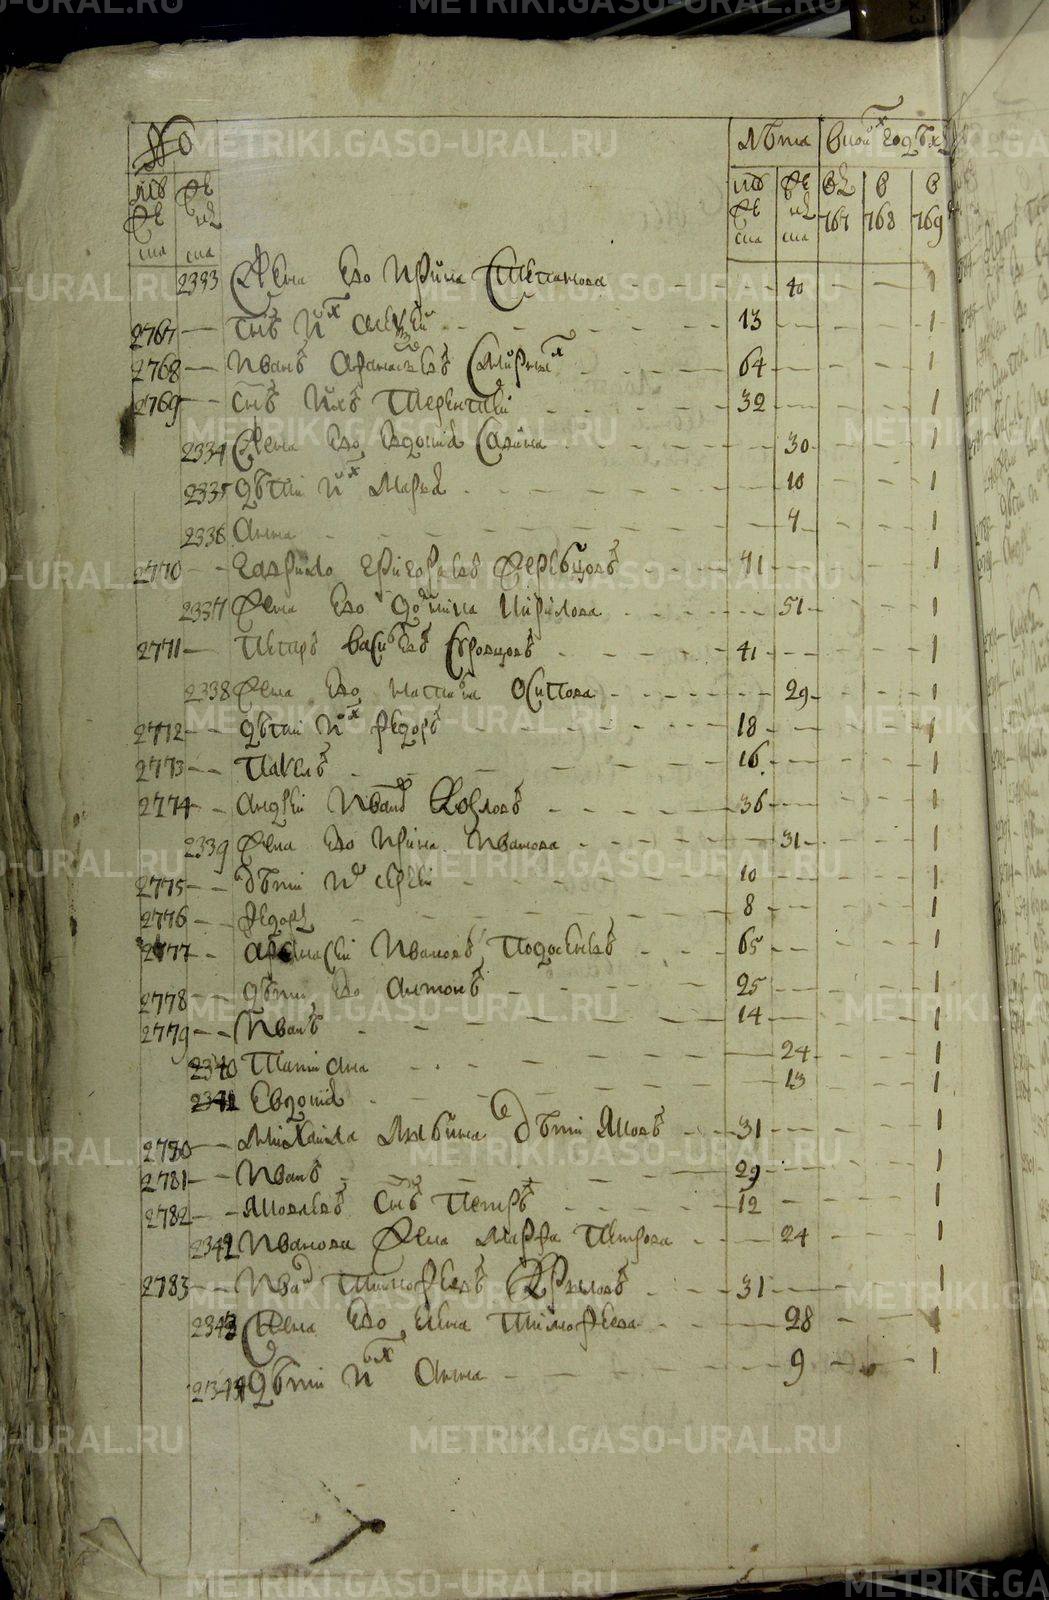 № Лѣта в кои х годѣх
муже женс муже женс въ в в
ска ска ска ска 767 768 769
2333 Жена ево Ирина Степанова 40 1
2767 Снъ их Алексѣй 13 1
2768 Иванъ Афанасьевъ 64 1
2769 Снъ ихъ Терентей 32 1
2334 Жена ево Евдокия Савина 30 1
2335 Дѣти их Марья 10 1
2336 Анна 4 1
2770 Гаврило Григорьевъ 41 1
2337 Жена ево Домина Кирилова 51 1
2771 Петръ Васильевъ Суровцовъ 41 1
2338 Жена ево Наталья Осипова 29 1
2772 Дѣти их Федоръ 18 1
2773 Павелъ 16 1
2774 Андрей Иванов Козловъ 36 1
2339 Жена ево Ирина Иванова 31 1
2775 Дѣти их Сергей 10 1
2776 Федоръ 8 1
2777 Афанасей Ивановъ 65 1
2778 Дѣти ево Антонъ 25 1
2779 Иванъ 14 1
2340 Татиана 24 1
2341 Евдокия 13 1
2780 Михаила дѣти Яковъ 31 1
2781 Иванъ 29 1
2782 Яковлевъ Снъ Петръ 12 1
2342 Иванова Жена Марфа Петрова 24 1
2783 Иван Тимофеевъ Крыловъ 31 1
2343 Жена ево Елена Тимофеева 28 1
2344 Дѣти их Анна 9 1
METRIKI.GASO-URAL.RU